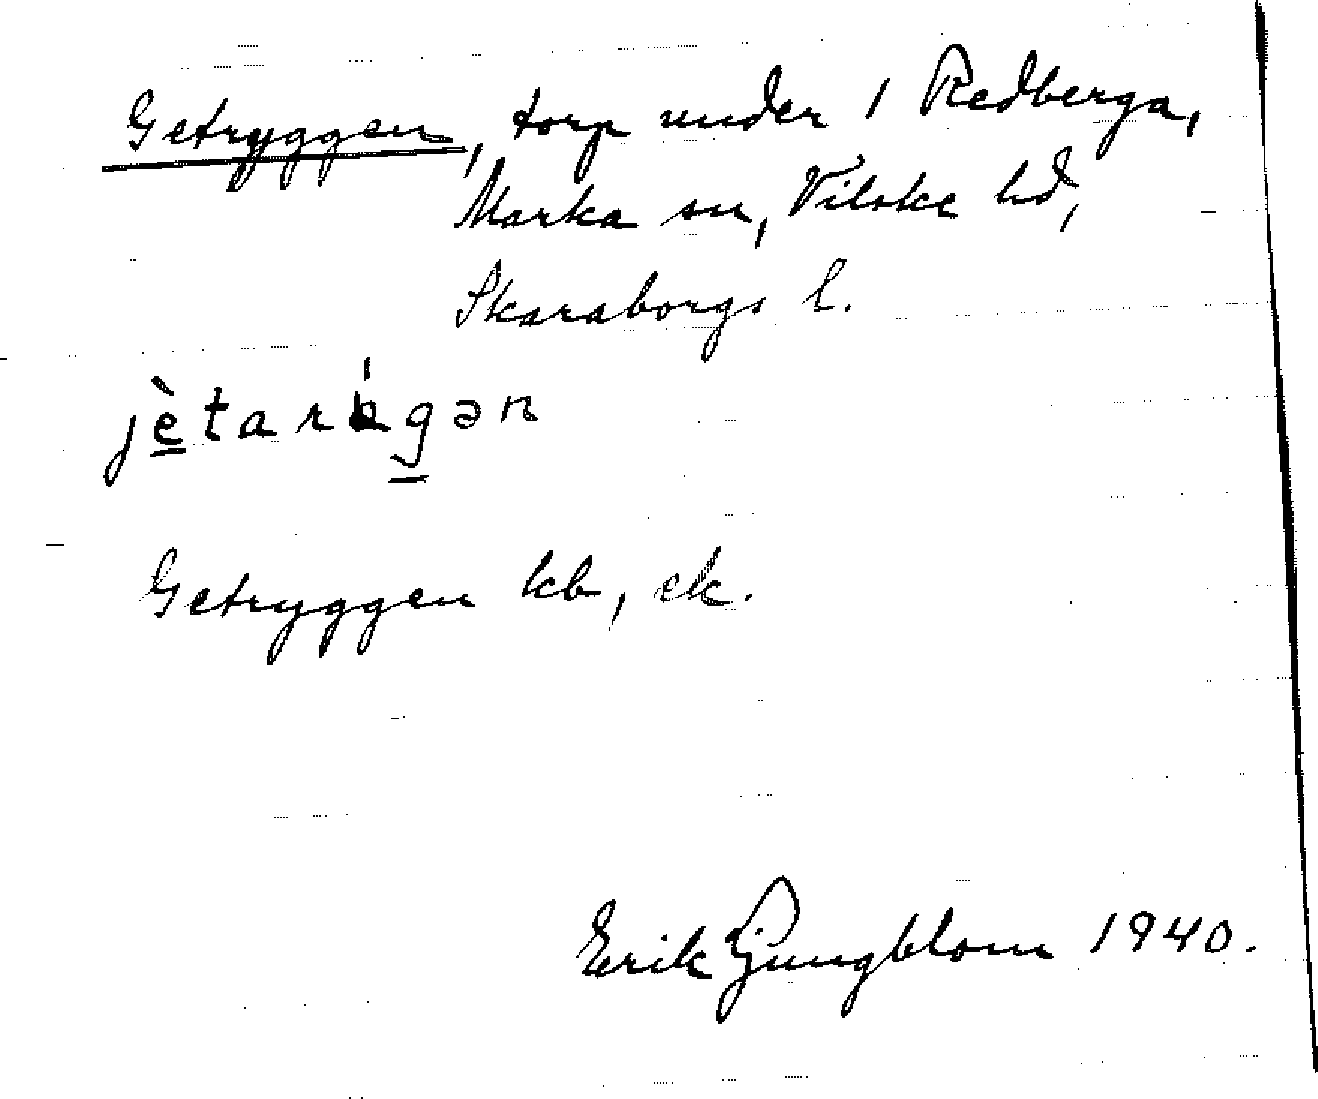 Getryggen, torp under 1 Redberga,
Marka sn, Vilske hd,
Skaraborgs l.
Getryggen kb, ek.
Erik Ljungblom 1940.